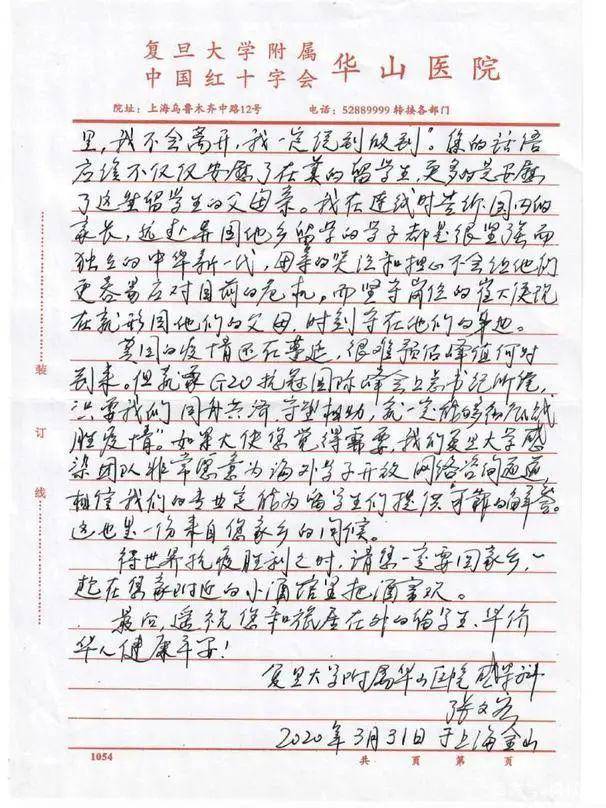 复旦大学附属
中国红十字会 华山医院
院址：上海乌鲁木齐中路12号 电话：52889999 转接各部门
里，我不会离开，我一定说到做到”。您的话语
应该不仅仅安慰了在英的留学生，更多的是安慰
了这些留学生的父母亲。我在连线时告诉国内的
家长，远赴异国他乡留学的学子都是很坚强而
独立的中华新一代，母亲的哭泣和担心不会给他们
更容易应对目前的危机，而坚守岗位的崔大使现
在就形同他们的父母，时刻守在他们的身边。
英国的疫情还在蔓延，很难预估峰值何时
到来。但就像G20抗冠国际峰会上总书记所讲，
只要我们同舟共济、守望相助，就一定能够彻底战
胜疫情。如果大使您觉得需要，我们复旦大学感
染团队非常愿意为海外学子开放网络咨询通道，
相信我们的专业定能为留学生们提供可靠的解答。
这也是一份来自您家乡的问候。
待世界抗疫胜利之时，请您一定要回家乡，一
起在您家附近的小酒馆里把酒言欢。
最后，遥祝您和旅居在外的留学生、华侨
华人健康平安！
复旦大学附属华山医院感染科
张文宏
2020年3月31日于上海金山
装
订
线
1054
共 页 第 页